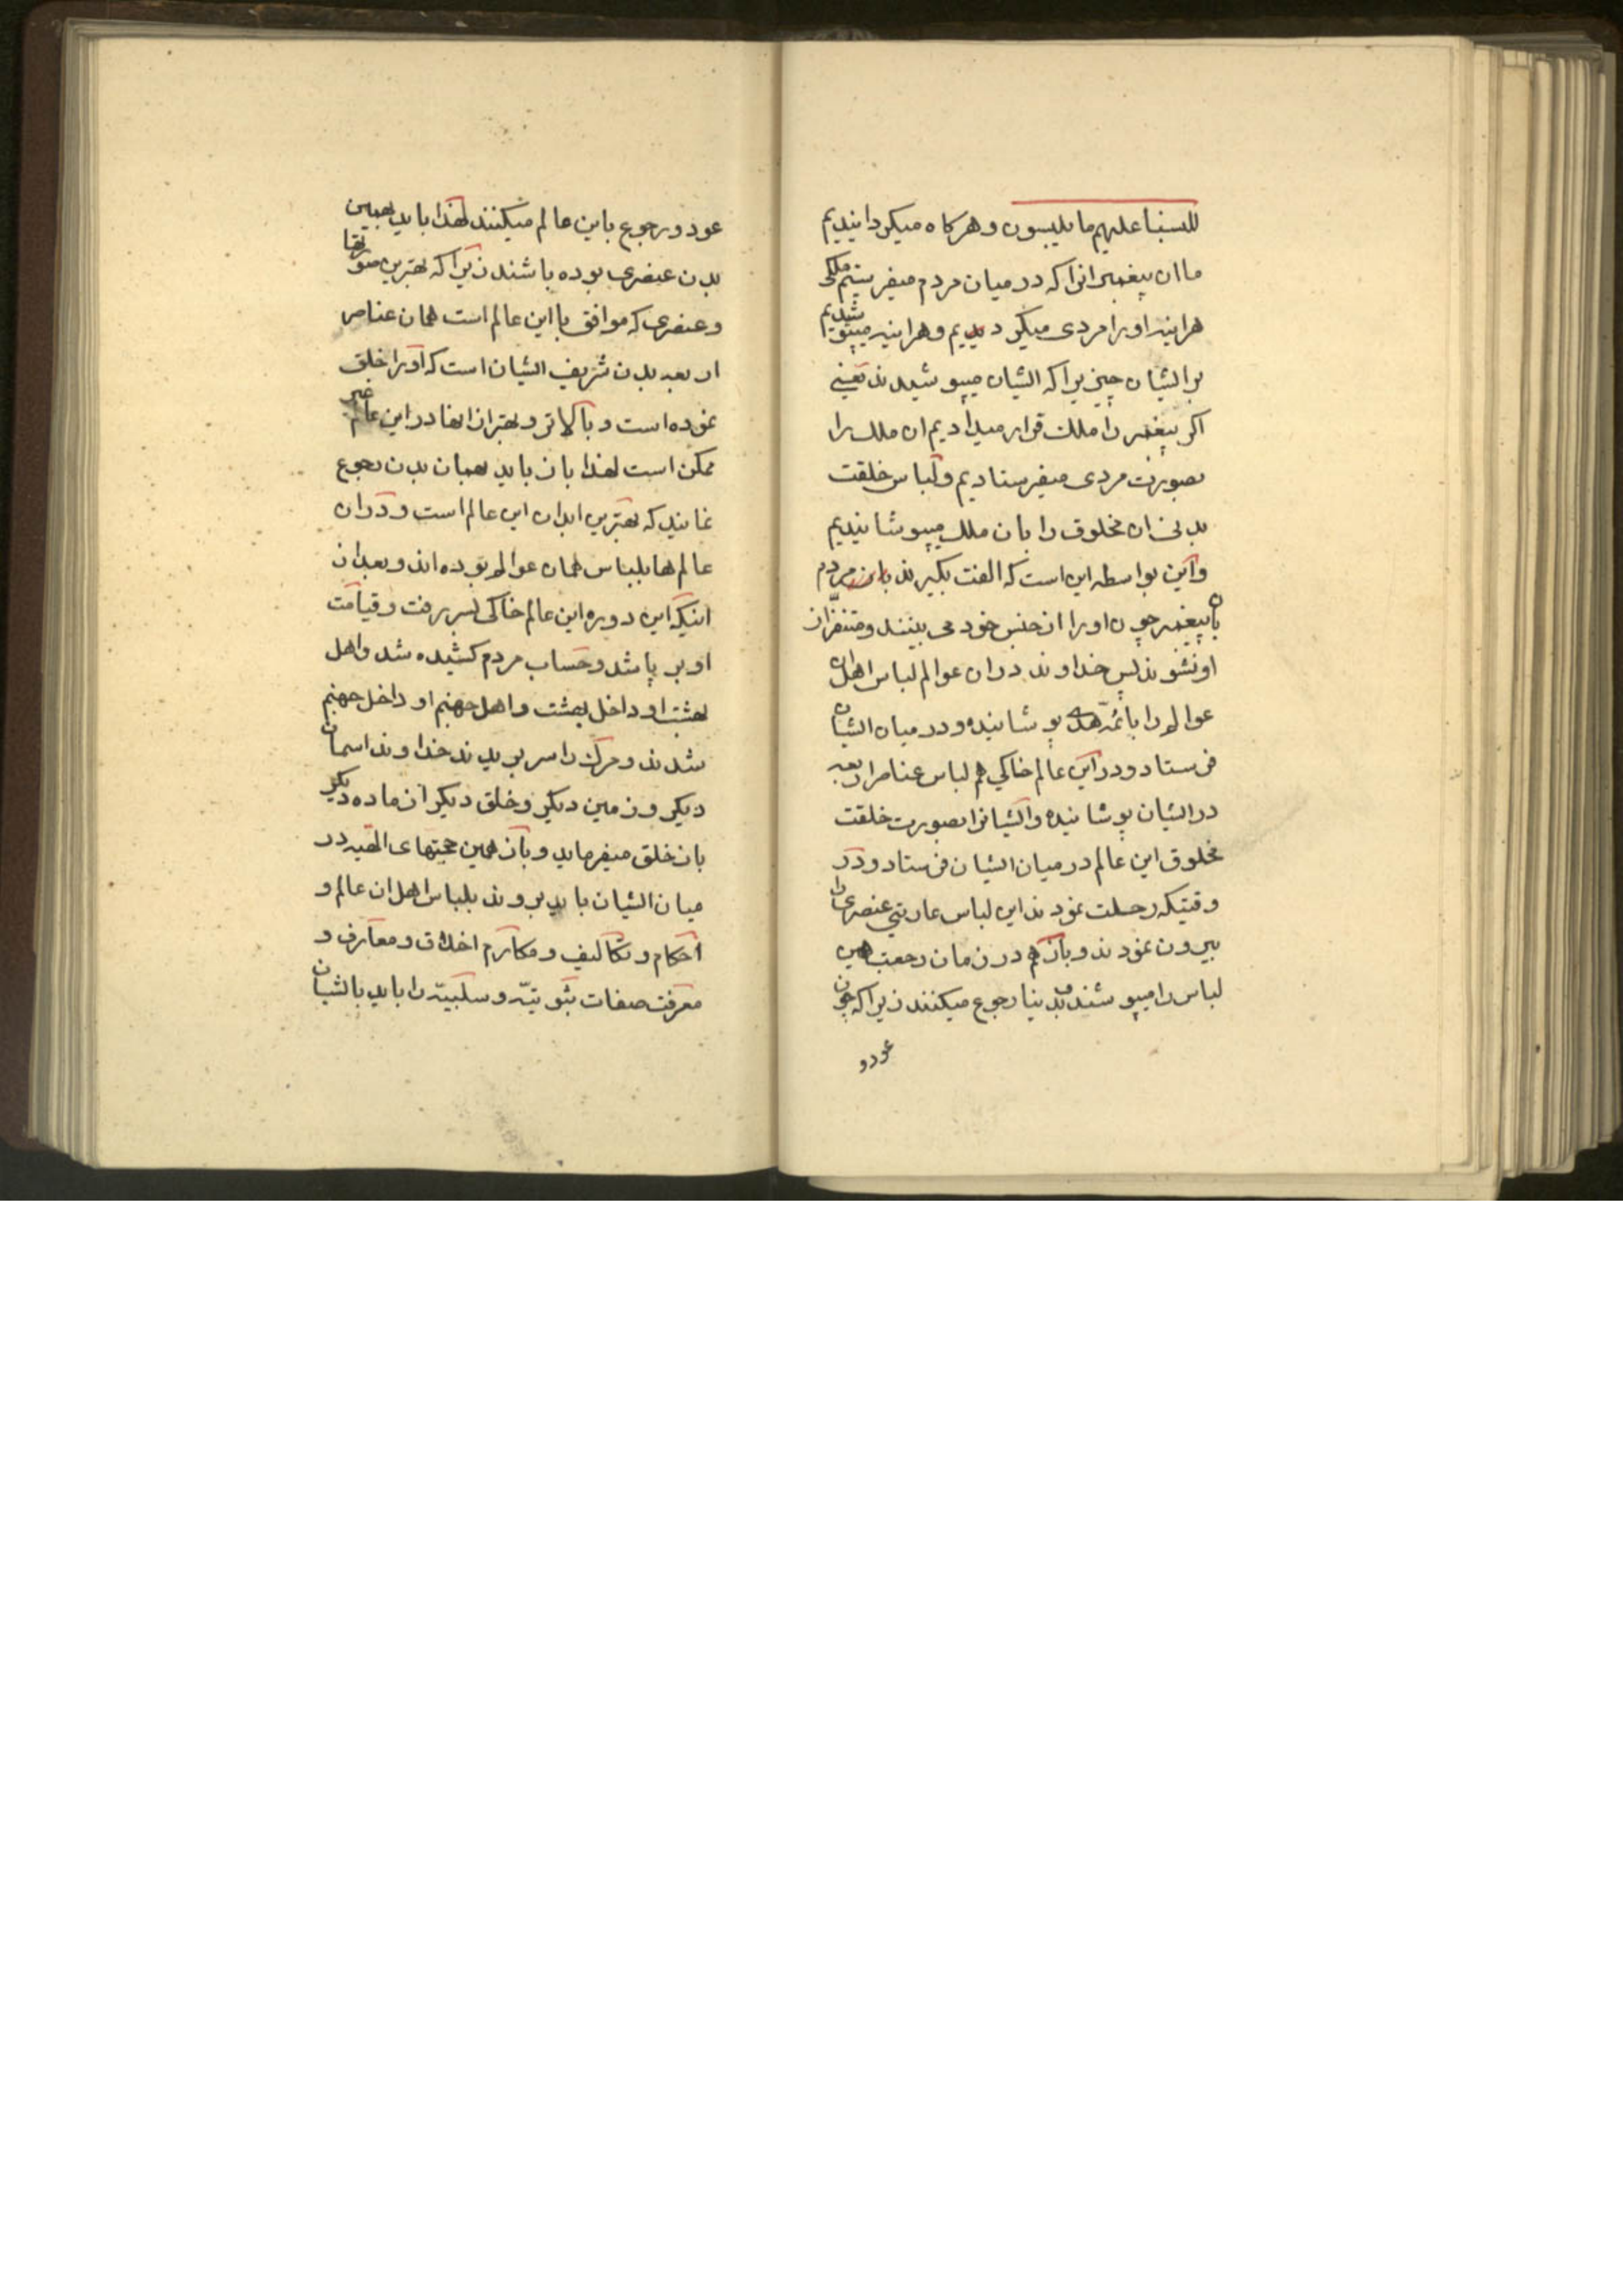 للبسنا علیهم ما یلبسون و هرکاه میکردانیدیم
ما ان پیغمبرانرا که در میان مردم میفرستیم ملکی
هراینه او را مردی میکردیدیم و هراینه میپوشیدیم
بر ایشان چیزیرا که ایشان میپوشیدند یعنی
اکر پیغمبر را ملک قرار میدادیم ان ملک را
بصورت مردی میفرستادیم و لباس خلقت
بدنی ان مخلوق را بان ملک میپوشانیدیم
و این بواسطه این است که الفت بکیرند این مردم
بان پیغمبر چون او را از جنس خود می بینند و متنفر از
او نشوند پس خداوند در ان عوالم لباس اهل ان
عوالم را بائمّه هدی پوشانیده و در میان ایشان
فرستاد و در این عالم خاکی هم لباس عناصر اربعه
در ایشان پوشانیده و ایشانرا بصورت خلقت
مخلوق این عالم در میان ایشان فرستاد و در
وقتیکه رحلت نمودند این لباس عاریتی عنصری را
بیرون نمودند و باز هم در زمان رجعت همین
لباس را میپوشند و بدنیا رجوع میکنند زیرا که چون
عود و
عود و رجوع باین عالم میکنند لهذا باید بهمین
بدن عنصری بوده باشند زیرا که بهترین صورتها
و عنصری که موافق با این عالم است همان عناصر
اربعه بدن شریف ایشان است که او را خلق
نموده است و بالاتر و بهتر از انها در این عالم غیر
ممکن است لهذا باز باید بهمان بدن رجوع
نمایند که بهترین ابدان این عالم است و در ان
عالم ها بلباس همان عوالم بوده اند و بعد از
اینکه این دوره این عالم خاکی بسر رفت و قیامت
او بر پا شد و حساب مردم کشیده شد و اهل
بهشت او داخل بهشت و اهل جهنم او داخل جهنم
شدند و مرک را سر بریدند خداوند اسمان
دیکر و زمین دیکر و خلق دیکر از ماده دیکر
باز خلق میفرماید و باز همین حجتهای الهیه در
میان ایشان باید بروند بلباس اهل ان عالم و
احکام و تکالیف و مکارم اخلاق و معارف و
معرفت صفات ثبوتیّه و سلبیّه را باید بایشان